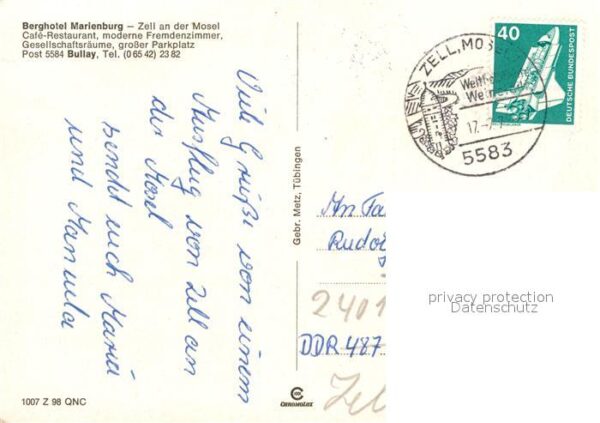 Berghotel Marienburg – Zell an der Mosel
Café-Restaurant, moderne Fremdenzimmer,
Gesellschaftsräume, großer Parkplatz
Post 5584 Bullay, Tel. (0 65 42) 23 82
Viele Grüße von einem
Ausflug von Zell an
der Mosel
sendet euch Maria
und Manuela
Gebr. Metz, Tübingen
40
DEUTSCHE BUNDESPOST
ZELL, MOS
5583
An Fa
Rudo
2401
DDR 487
privacy protection
Datenschutz
1007 Z 98 QNC
CHROMOLUX